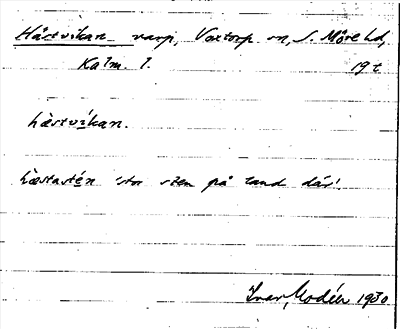 Håstvikan varp, Voxtorp sn, S. Möre hd,
Kalm. l. 19 t
hæstvíkan.
hæstastén 'stor sten på land där'.
Ivar Modéer 1930